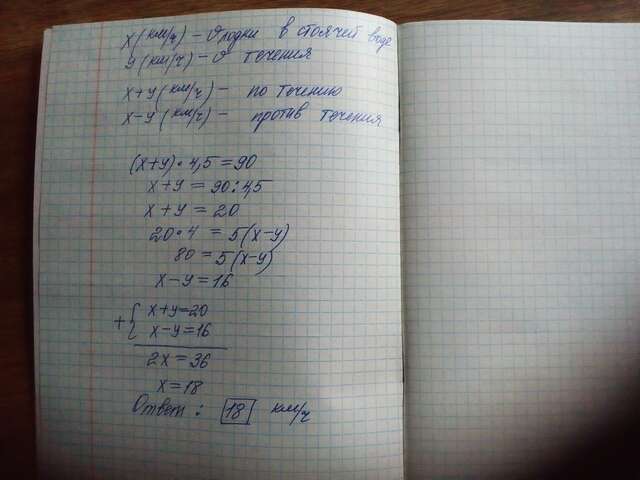 x (км/ч) – v лодки в стоячей воде
y (км/ч) – v течения
x+y (км/ч) – по течению
x–y (км/ч) – против течения
(x+y)·4,5=90
x+y = 90:4,5
x+y = 20
20·4 = 5(x–y)
80=5(x–y)
x–y=16
+{ x+y=20
x–y=16
2x=36
x=18
Ответ: 18 км/ч